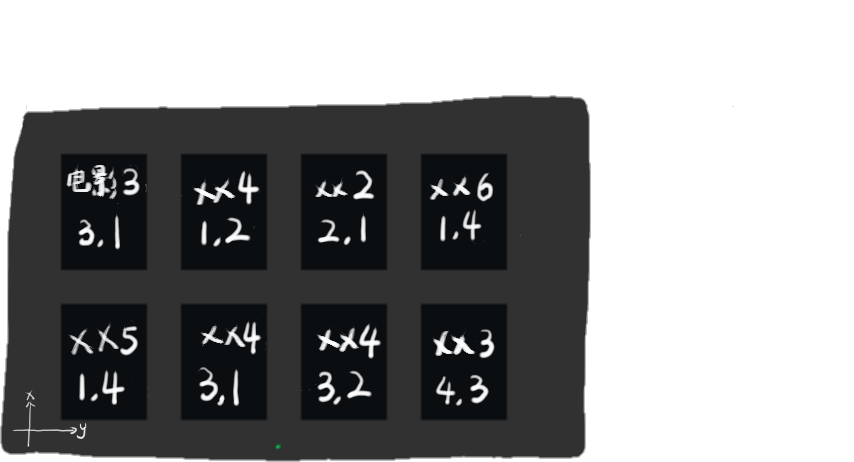 电影3
3.1
xx4
1.2
xx2
2.1
xx6
1.4
xx5
1.4
xx4
3.1
xx4
3.2
xx3
4.3
x
y